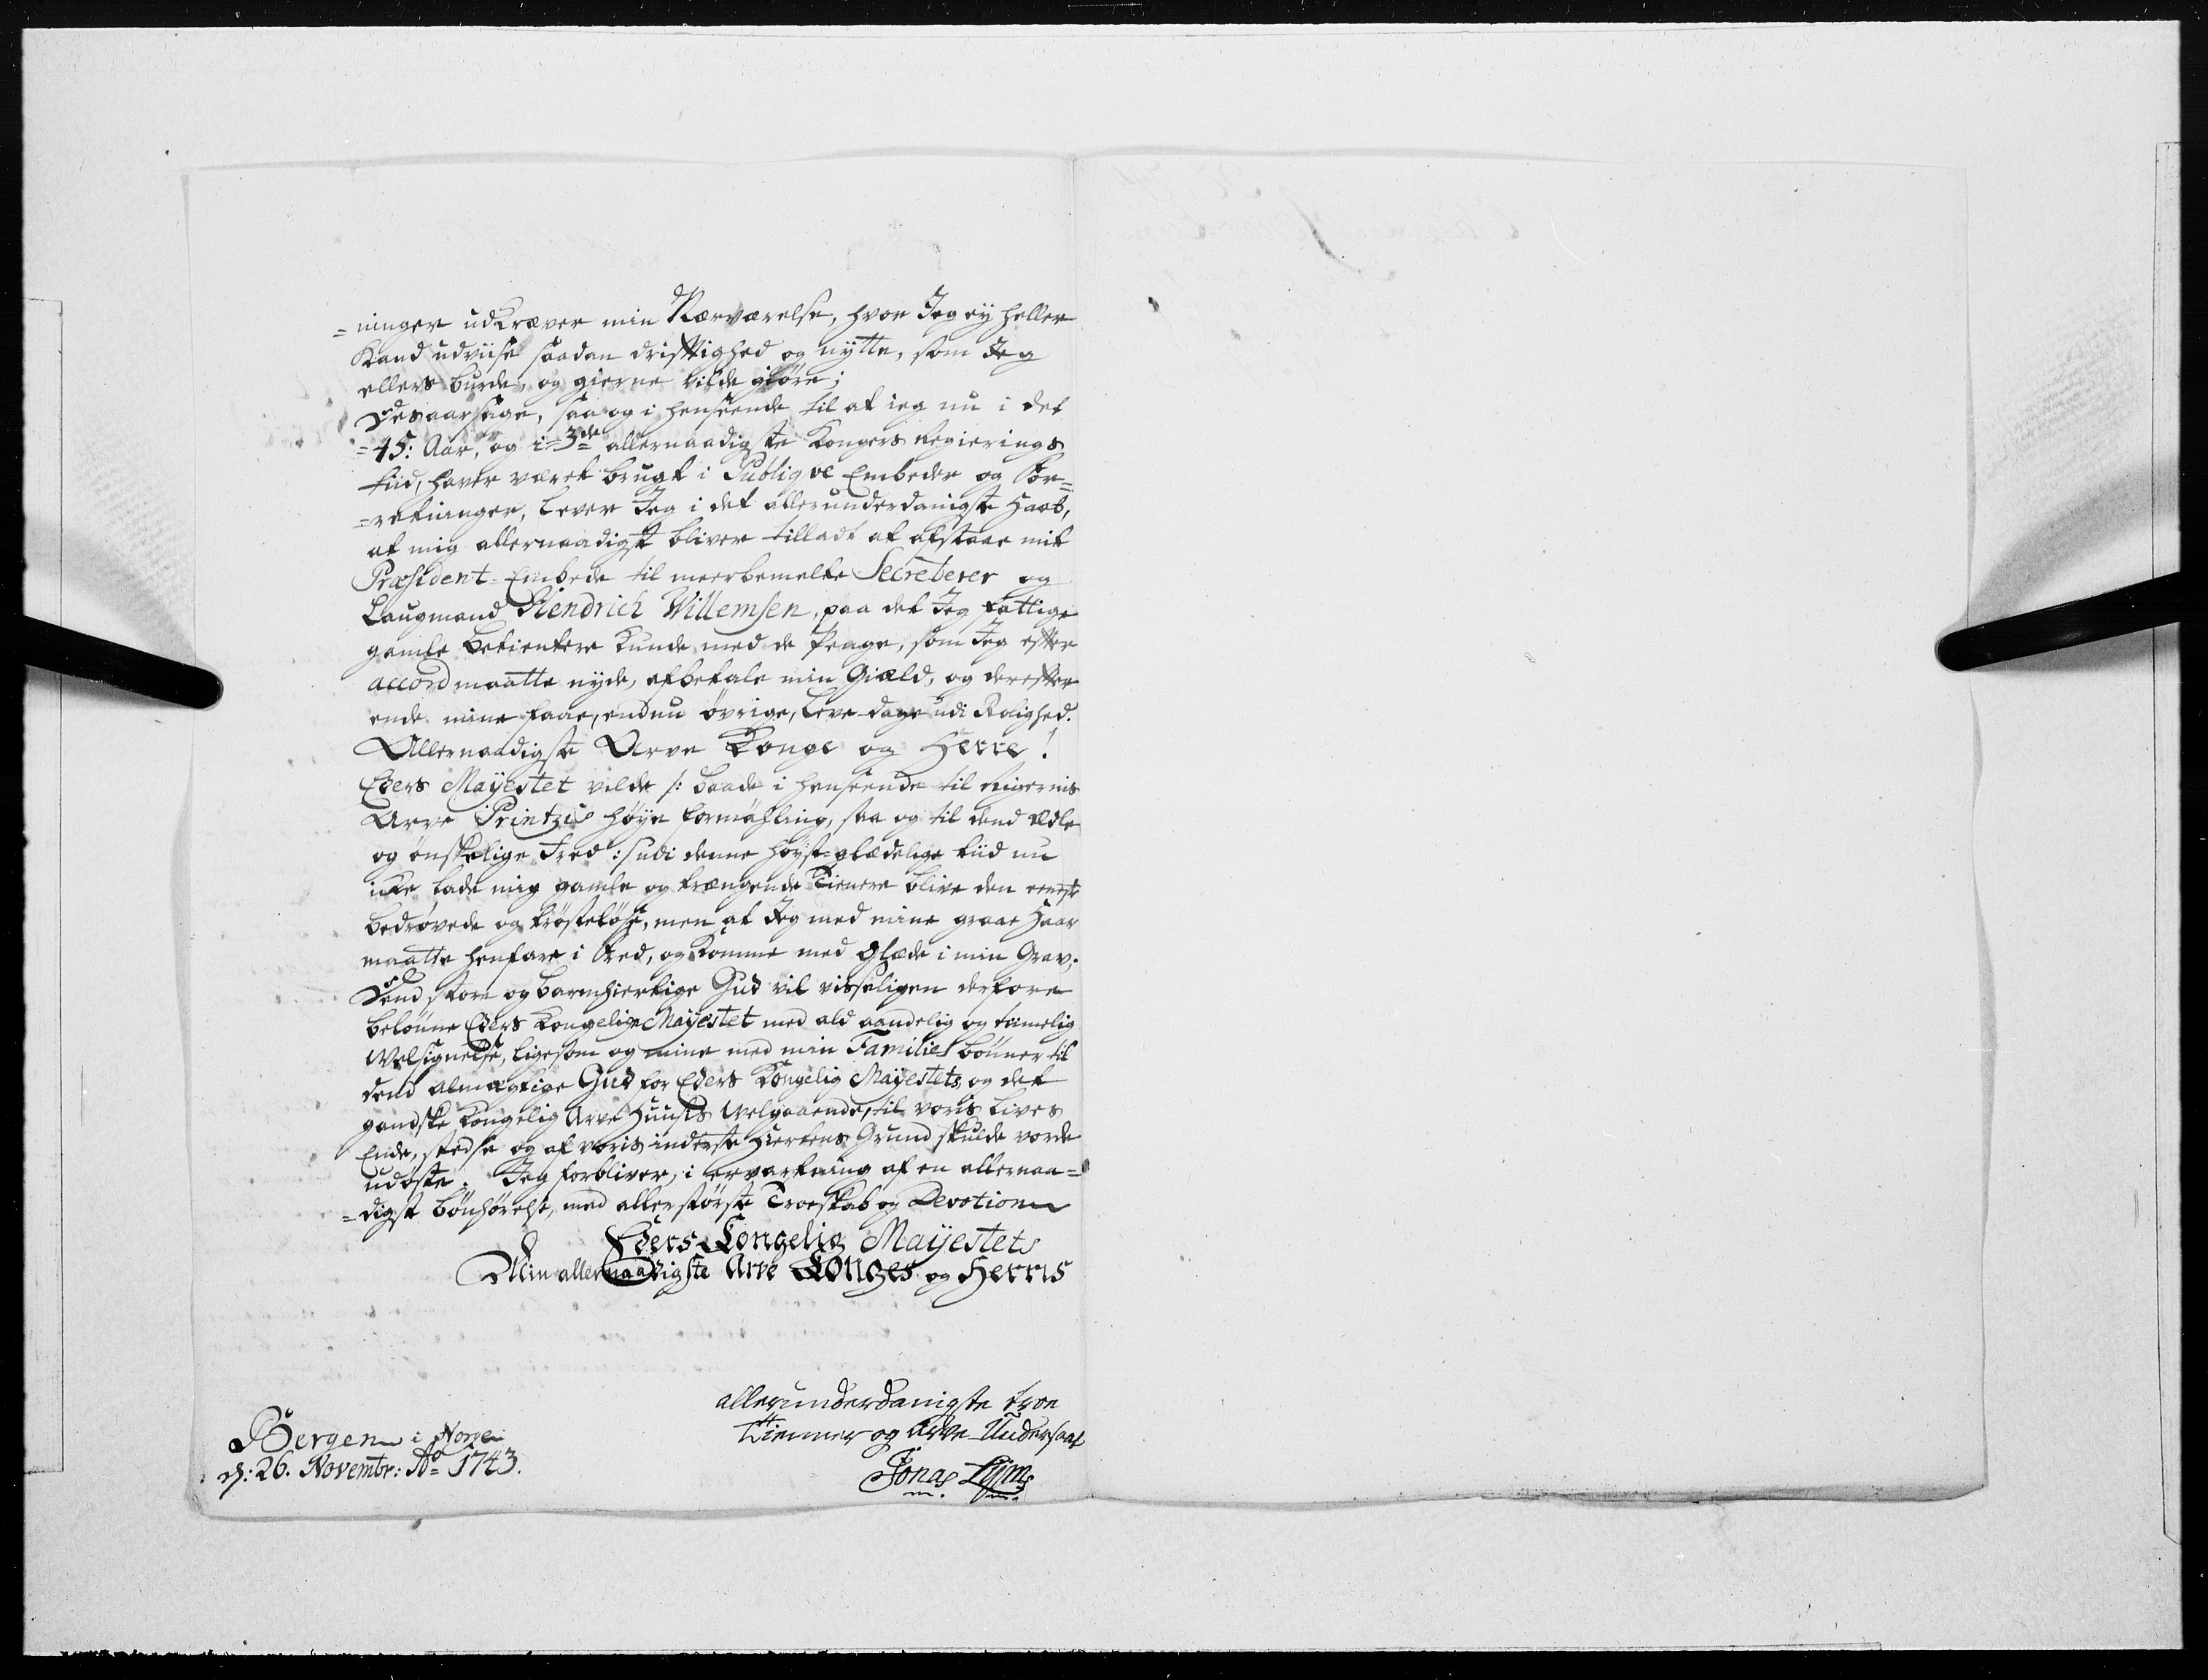 =ninger udkræver min Nærværelse, hvor Jeg ey heller
Kand udviise saadan driftighed og nytte, som Jeg
ellers burde, og gierne vilde giöre;
Desaarsage, saa og i henseende til at ieg nu i det
=45: Aar, og i =3de allernaadigste Kongers Regierings
tiid, haver været brugt i Publiqve Embeder og For=
=retninger, lever Jeg i det allerunderdanigste Haab,
at mig allernaadigst bliver tilladt at afstaae mit
Præsident-Embede til meerbemelte Secreterer og
Laugmand Hendrich Willemsen, paa det Jeg fattige
gamle betientere kunde med de Penge, som Jeg efter
accord maatte nyde, afbetale min Giæld, og derefter
ende mine faae, endnu övrige, Leve-dage udi Rolighed.
Allernaadigste Arve Konge og Herre!
Eders Mayestet vilde /: baade i henseende til Rigernis
Arve Printzis höye formähling, saa og til dend ædle
og önskelige Fred :/ udi denne höyst-glædelige tiid nu
icke lade mig gamle og trængende Tienere blive den eeneste
bedrövede og trösteslöse, men at Jeg med mine graae Haar
maatte henfare i Fred, og komme med glæde i min Grav;
Dend store og barmhiertige Gud vil visseligen derfore
belönne Eders Kongelige Mayestet med ald aandelig og timelig
Velsignelse, ligesom og mine med min Families bönner til
dend almægtige Gud for Eders Kongelig Mayestets og det
gandske Kongelig Arve Huuses Velgaaende, til voris Lives
Ende, stedse og af voris inderste Hiertens Grund skulde vorde
udöste. Jeg forbliver, i ervartning af en allernaa=
=digst bönhörelse, med allerstörste Troeskab og Devotion
Eders Kongelig Mayestets
Min allernaadigste Arve Konges og Herris
allerunderdanigste troe
Tienner og Arve-Undersaat
Bergen i Norge
d: 26. Novembr: Ao 1743.
Jonas Lÿm